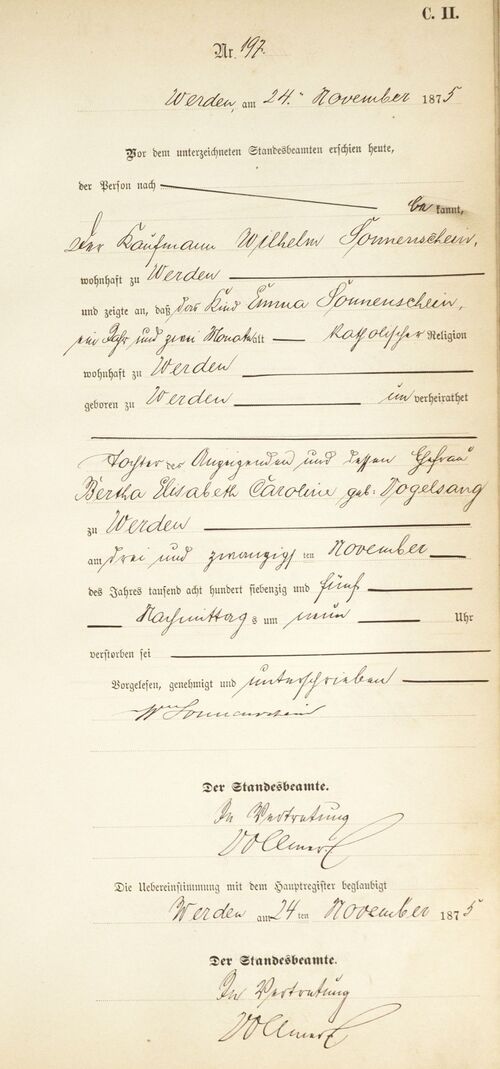 C. II.
Nr. 197.
Werden, am 24. November 1875
Vor dem unterzeichneten Standesbeamten erschien heute,
der Person nach
be kannt,
Der Kaufmann Wilhelm Sonnenschein,
wohnhaft zu Werden
und zeigte an, daß das Kind Emma Sonnenschein,
ein Jahr und zwei Monate alt katholischer Religion
wohnhaft zu Werden
geboren zu Werden unverheirathet
Tochter des Anzeigenden und dessen Ehefrau
Bertha Elisabeth Caroline, geb: Vogelsang
zu Werden
am drei und zwanzigsten November
des Jahres tausend acht hundert siebenzig und fünf
Nachmittags um neun Uhr
verstorben sei
Vorgelesen, genehmigt und unterschrieben
Wm Sonnenschein
Der Standesbeamte.
In Vertretung
Vollmer
Die Uebereinstimmung mit dem Hauptregister beglaubigt
Werden am 24 ten November 1875
Der Standesbeamte.
In Vertretung
Vollmer